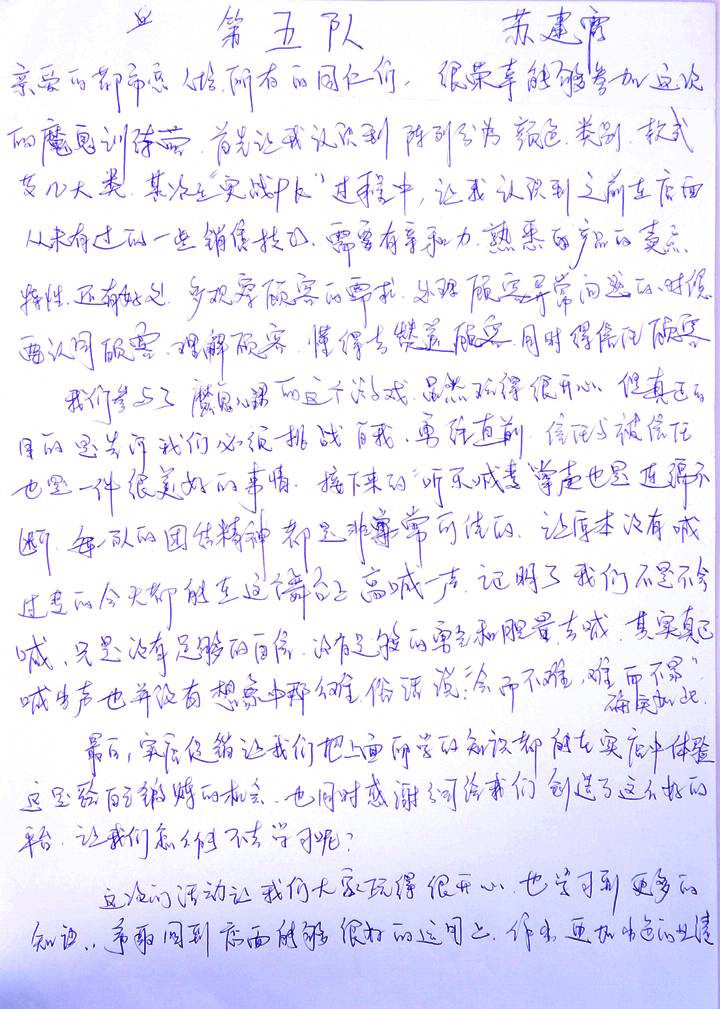 第五队 苏建
亲爱的都市恋人给所有的同仁们，很荣幸能够参加这次
的魔鬼训练营，首先让我认识到陈列分为颜色、类别、款式
及几大类，其次在"实战"过程中，让我认识到之前在店面
从未有过的一些销售技巧，需要有亲和力、熟悉的产品的卖点
特性、还有好处，多观察顾客的需求，处理顾客异常问题的时候
要认同顾客、理解顾客、懂得去赞美顾客，同时得信任顾客
我们参与了魔鬼的这个游戏，虽然玩得很开心，但真正的
目的是告诉我们必须挑战自我、勇往直前，信任与被信任
也是一件很美好的事情，接下来的"听乐喊麦"掌声也是连绵不
断，每队的团结精神都是非常可佳的，让原本没有喊
过麦的今天都能在这个舞台上高喊一声，证明了我们不是不会
喊，只是没有足够的自信，没有足够的勇气和胆量去喊，其实真正
喊出声也并没有想象中那么难，俗话说："会而不难，难而不累"
确实如此
最后，实店促销让我们把上面所学的知识都能在实店中体验
这是给自己锻炼的机会，也同时感谢公司给我们创造了这么好的
平台，让我们怎么能不去学习呢？
这次的活动让我们大家玩得很开心，也学习到更多的
知识，争取回到店面能够很好的运用上，作出更加出色的业绩